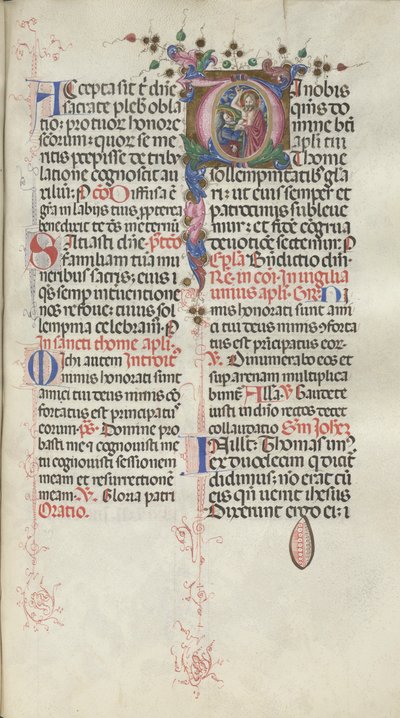 Accepta sit t dñe
sacrate pleb obla
tio: pro tuor honore
scorum: quor se me
ritis percepisse de trib
latione cognoscit au
xiliuʒ. P cō Diffusa ē
gr̄a in labiis tuis propterea
benedixit te d̄s in eternū.
Satiasti dñe. Postcō
familiam tuā mu
neribus sacris: eius
qs semp interuentione
nos refoue: cuius sol
lempnia celebram. P
In sancti thome apli.
Michi autem Introit
nimis honorati sunt
amici tui deus nimis cō
fortatus est principatu
eorum. ps. Domine pro
basti me ⁊ cognouisti me
tu cognouisti sessionem
meam et resurrectionē
meam. V. Gloria patri
Oratio.
Da nobis
qs do
mine bti
apli tui
Thome
sollempnitatib gla
ri: ut eius semper et
patrociniis subleue
mur: et fidē congrua
deuotiōe sectemur. P
Epla Bn̄dictio dñi.
Re. in cōi. In uigilia
unius apli. Gr. Ni
mis honorati sunt ami
ci tui deus nimis cōforta
tus est pricipatus eor.
V. Dinumerabo eos et
sup arenam multiplica
bunt. Alla. V. Gaudete
iusti in dño rectos decet
collaudatio. S'm Johem
In illo t. Thomas unus
ex duodecim q dicit
didimus: nō erat cū
eis qñ uenit ihesus
Dixerunt ergo ei: i